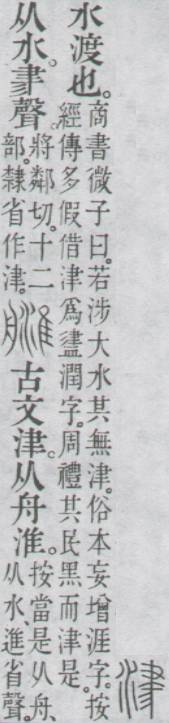 津
水渡也。
商書微子曰。若涉大水其無津。俗本妄增涯字。按
經傳多假借津爲𧗁潤字。周禮其民黑而津是。
从水𦘔聲。
將鄰切。十二
部。隸省作津。
古文津。从舟淮。
按當是从舟、
从水、進省聲。